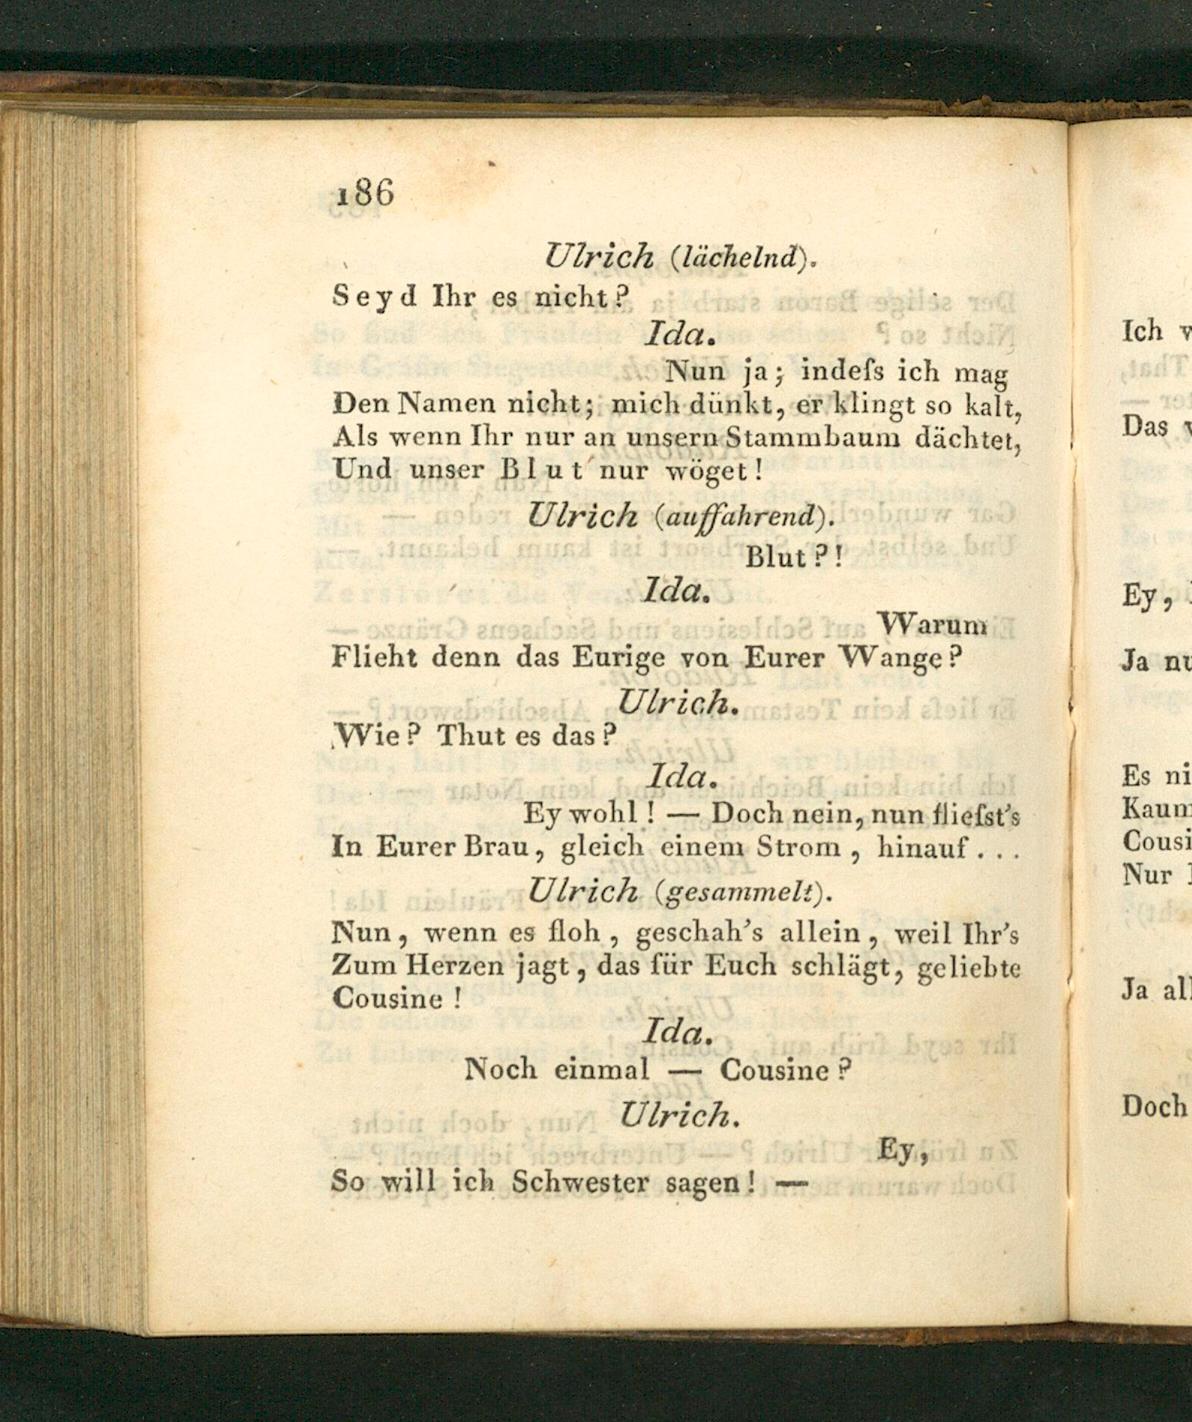 186
Ulrich (lächelnd).
Seyd Ihr es nicht?
Ida.
Nun ja; indeſs ich mag
Den Namen nicht; mich dünkt, er klingt so kalt,
Als wenn Ihr nur an unsern Stammbaum dächtet,
Und unser Blut nur wöget!
Ulrich (auffahrend).
Blut?!
Ida.
Warum
Flieht denn das Eurige von Eurer Wange?
Ulrich.
Wie? Thut es das?
Ida.
Ey wohl! — Doch nein, nun flieſst's
In Eurer Brau, gleich einem Strom, hinauf...
Ulrich (gesammelt).
Nun, wenn es floh, geschah's allein, weil Ihr's
Zum Herzen jagt, das für Euch schlägt, geliebte
Cousine!
Ida.
Noch einmal — Cousine?
Ulrich.
Ey,
So will ich Schwester sagen! —
Ich
Das
Ey,
Ja
Es
Nur
Ja
Doch